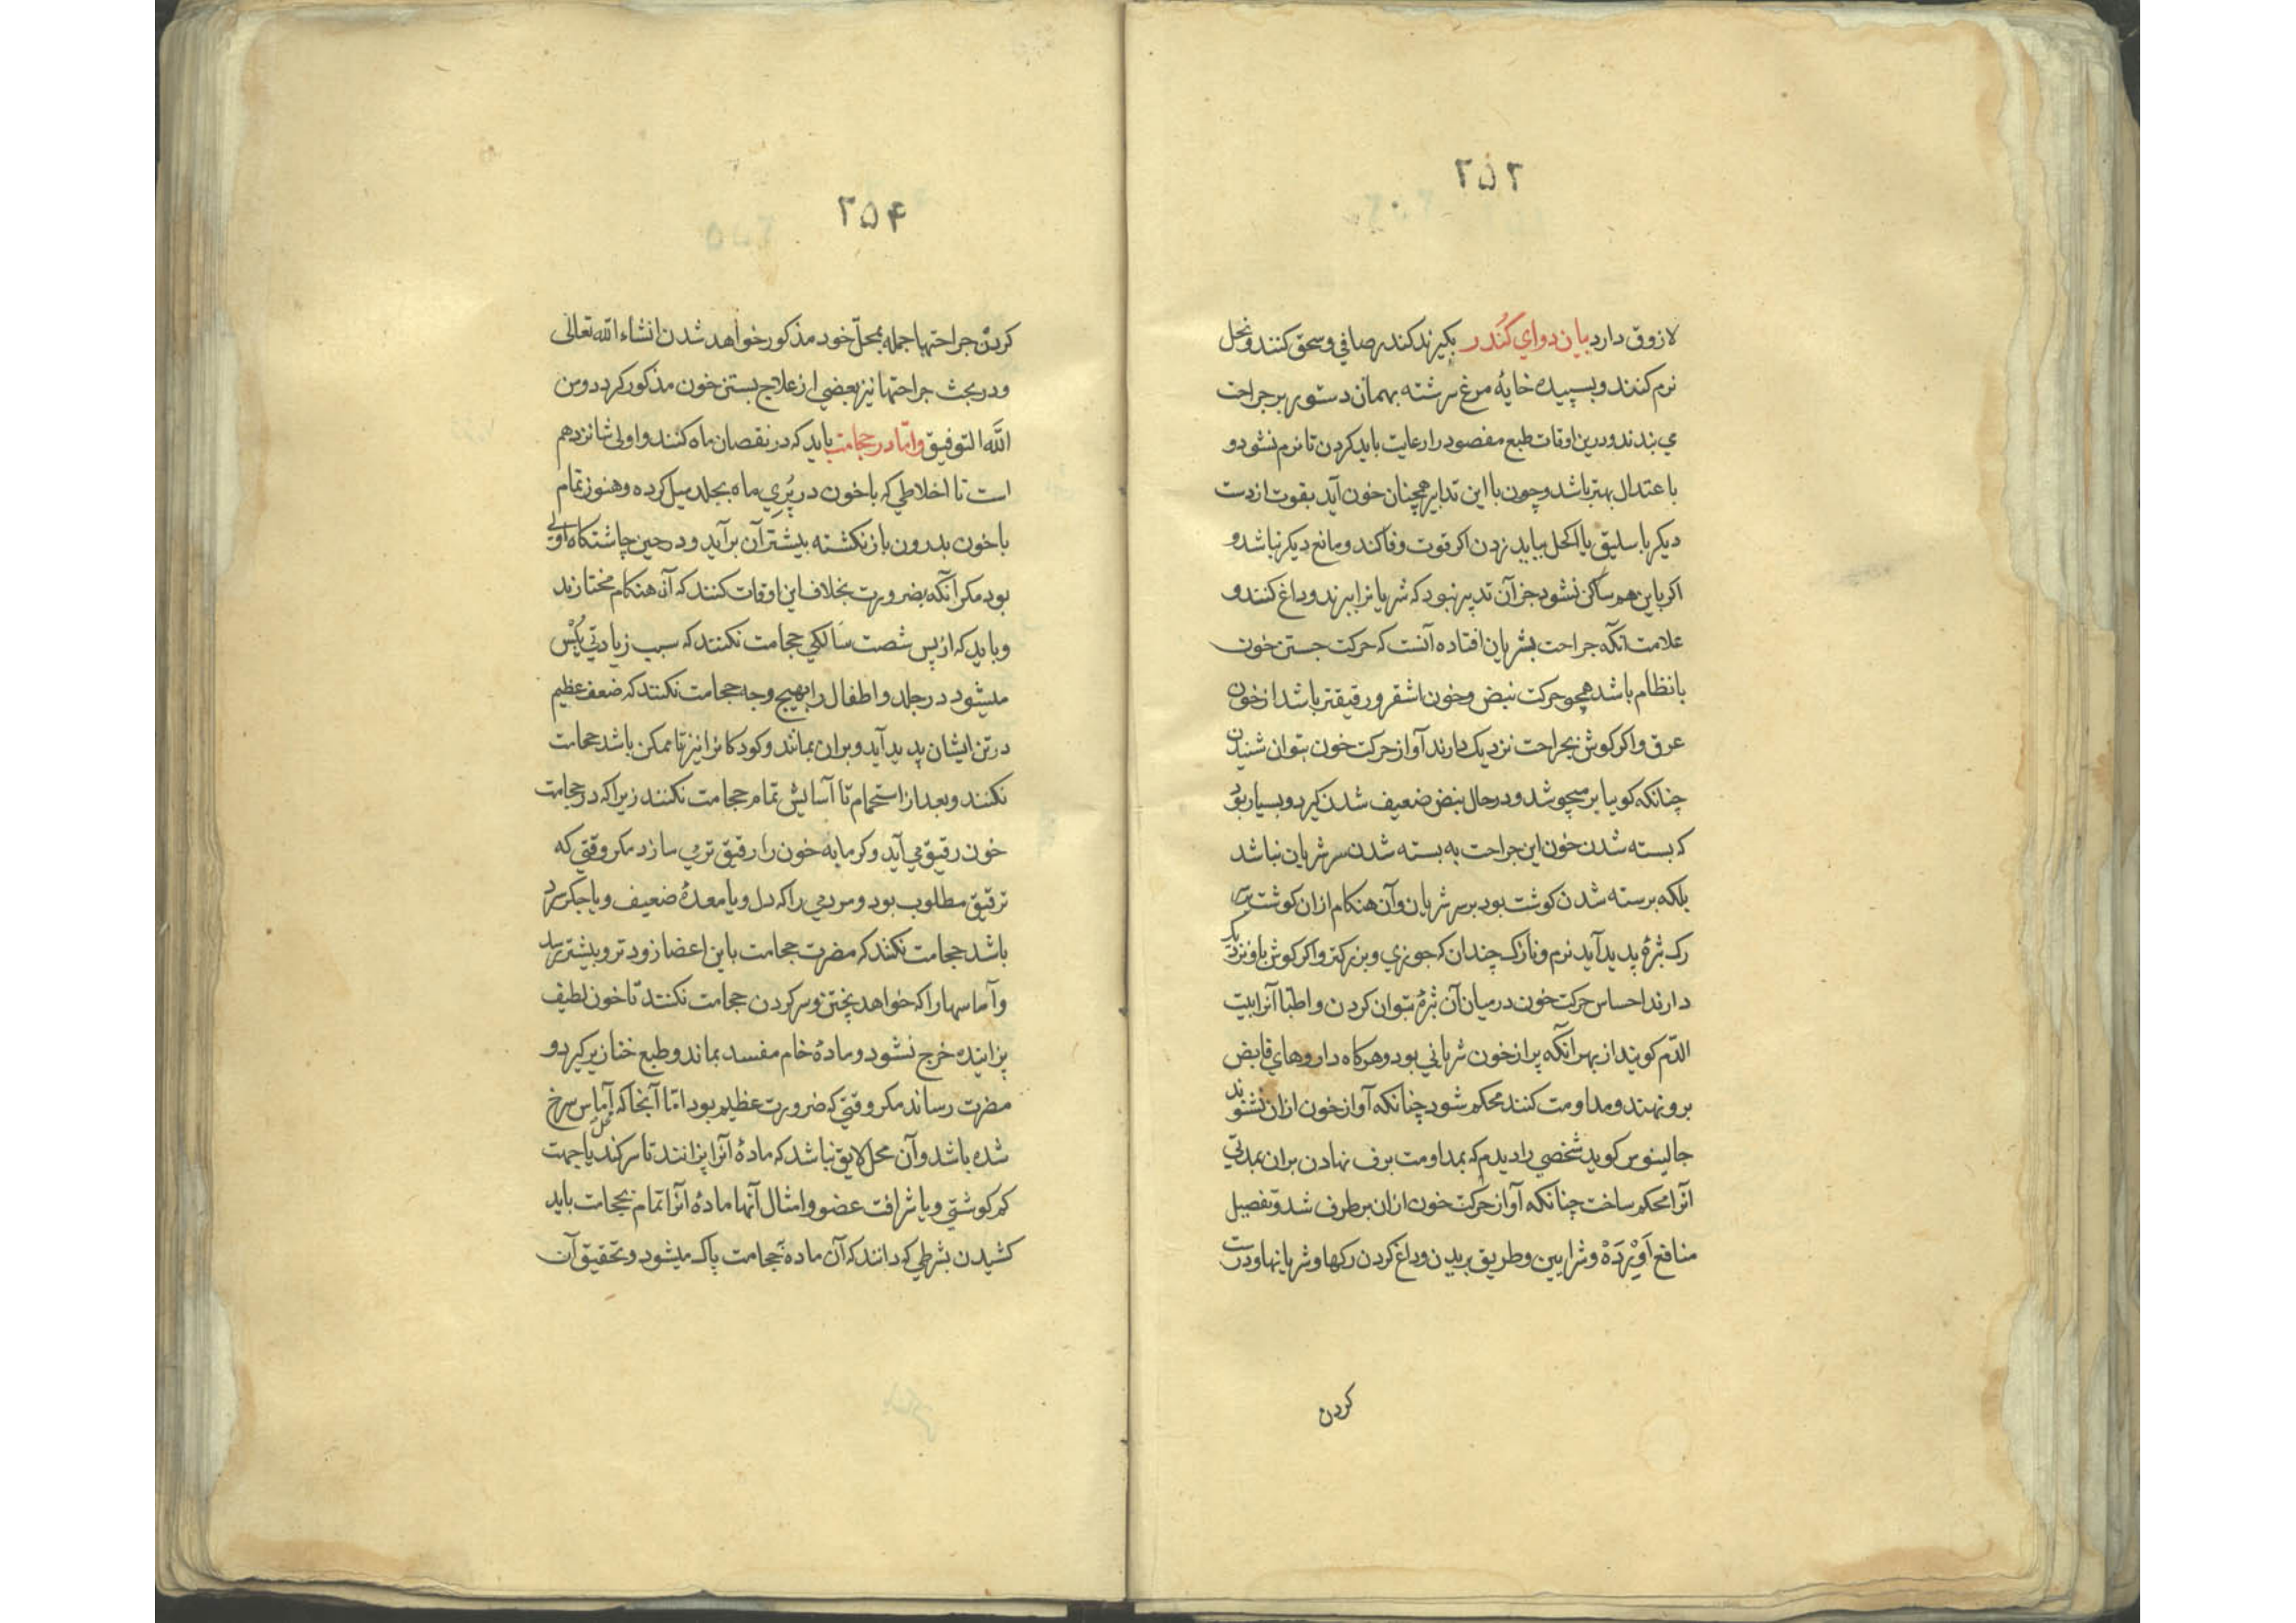 ۲۵۳
لازوق دارد بیان دوای کُندر بکیرند کندر صافی و سحق کنند و نخل
نرم کنند و بسپیده خایۀ مرغ سرشته بهمان دستور بر جراحت
می بندند و درین اوقات طبع مفصود را رعایت باید کردن تا نرم نشود و
باعتدال بهتر باشد و چون با این تدابیر همچنان خون آید بقوت از دست
دیکر باسلیق یا اکحل بباید زدن اکر قوت وفا کند و مانع دیکر نباشد و
اکر باین هم ساکن نشود جز آن تدبیر نبود که شریانرا ببرند و داغ کنند و
علامت آنکه جراحت بشریان افتاده آنست که حرکت جستن خون
بانظام باشد همچو حرکت نبض و خون اشقر و رقیقتر باشد از خون
عرق و اکر کوش بجراحت نزدیک دارند آواز حرکت خون بتوان شنیدن
چنانکه کویا بر میجوشد و در حال نبض ضعیف شدن کیرد و بسیار بود
که بسته شدن خون این جراحت به بسته شدن سر شریان نباشد
بلکه برسته شدن کوشت بود بر سر شریان و آن هنکام ازان کوشت بر سر
رک بثرۀ پدید آید نرم و نازک چندان که جوزی و بزرکتر و اکر کوش باو نزدیک
دارند احساس حرکت خون درمیان آن بثرۀ بتوان کردن و اطبّا آنرا بیت
الدّم کویند از بهر آنکه پر از خون شریانی بود و هرکاه داروهای قابض
برو نهند و مداومت کنند محکم شود چنانکه آواز خون ازان نشنوند
جالینوس کوید شخصی را دیدم که بمداومت برف نهادن بران بمدتی
آنرا محکم ساخت چنانکه آواز حرکت خون ازان برطرف شد و تفصیل
منافع اَوْرِدَهْ و شرایین و طریق بریدن و داغ کردن رکها و شریانها و درست
کردن
۲۵۴
کردن جراحتها جمله بمحلّ خود مذکور خواهد شدن انشاء الله تعالی
و در بحث جراحتها نیز بعضی از علاج بستن خون مذکور کردد و من
اللّه التوفیق وامّا در حجامت باید که در نقصان ماه کنند و اولی شانزدهم
است تا اخلاطی که با خون در پُرِیِ ماه بجلد میل کرده و هنوز تمام
با خون بدرون باز نکشته بیشتر آن برآید و در حین چاشتکاه اولی
بود مکر آنکه بضرورت بخلاف این اوقات کنند که آن هنکام مختارند
و باید که از پس شصت سالکی حجامت نکنند که سبب زیادتی یُبْس
میشود در جلد و اطفال را بهیچ وجه حجامت نکنند که ضعف عظیم
در تن ایشان پدید آید و بران بمانند و کودکانرا نیز تا ممکن باشد حجامت
نکنند و بعد از استحمام تا آسایش تمام حجامت نکنند زیرا که در حجامت
خون رقیق می آید و کرمابه خون را رقیق تر می سازد مکر وقتی که
ترقیق مطلوب بود و مردمی را که دل و یا معدۀ ضعیف و یا جکر سرد
باشد حجامت نکنند که مضرت حجامت باین اعضا زودتر و بیشتر رسد
و آماسها را که خواهد پختن و سر کردن حجامت نکنند تا خون لطیف
پزاینده خرج نشود و مادۀ خام مفسد بماند و طبع خنازیر کیرد و
مضرت رساند مکر وقتی که ضرورت عظیم بود امّا آنجا که آماس سرخ
شده باشد و آن محل لایق نباشد که مادۀ آنرا بپزانند تا سر کند یا جهت
کم کوشتی و یا شرافت عضو و امثال آنها مادۀ آنرا تمام بحجامت باید
کشیدن بشرطی که دانند که آن ماده بحجامت پاک میشود و تحقیق آن